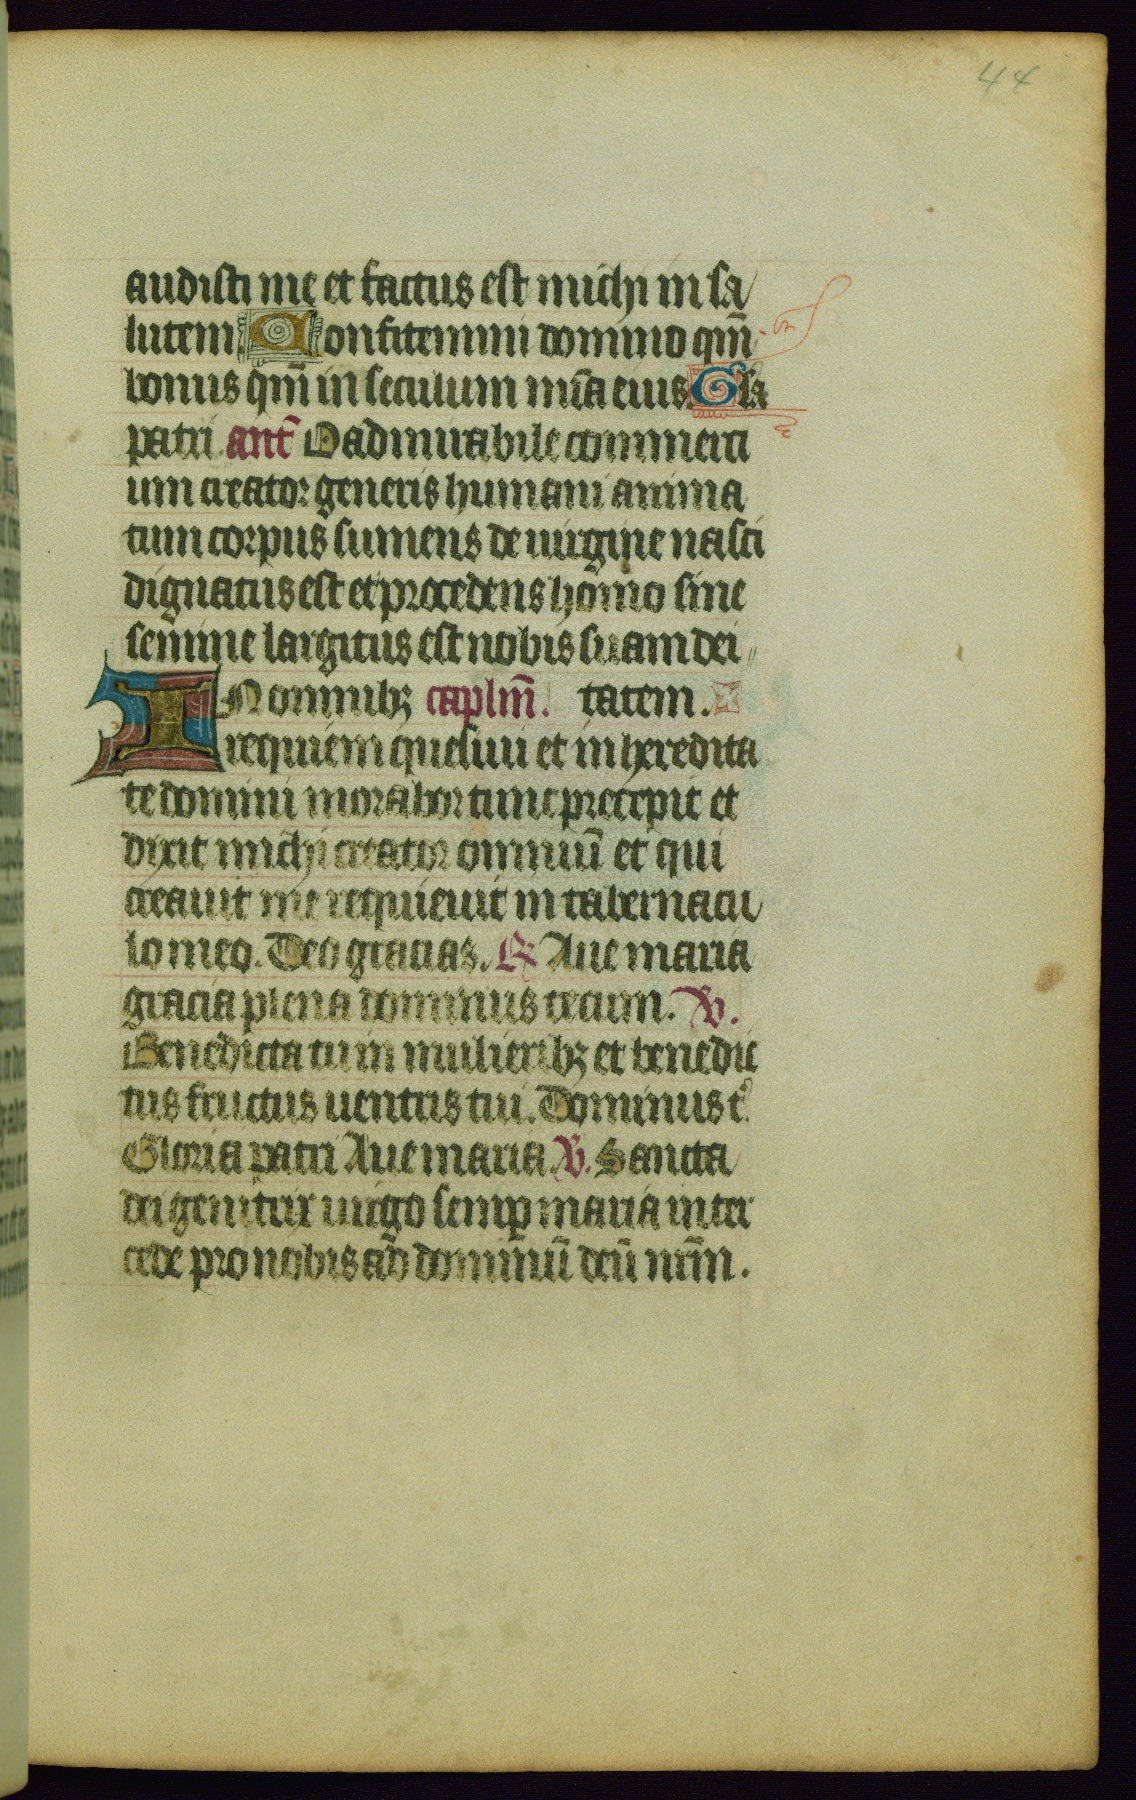 44
audisti me et factus est michi in sa
lutem Confitemini domino qm̄
bonus qm̄ in seculum mīa eius Gła
patri ant̄ O admirabile commerci
um creator generis humani anima
tum corpus sumens de uirgine nasci
dignatus est et procedens homo sine
semine largitus est nobis suam dei
IN omnibꝫ caplm̄. tatem.
requiem quesiui et in heredita
te domini morabor tunc precepit et
dixit michi creator omniū et qui
creauit me requieuit in tabernacu
lo meo. Deo gracias. ℟ Aue maria
gracia plena dominus tecum. ℣.
Benedicta tu in mulieribꝫ et benedic
tus fructus uentris tui. Dominus t̉
Gloria patri Aue maria ℣. Sancta
dei genitrix uirgo semꝑ maria inter
cede pro nobis ad dominū deū nrm̄.